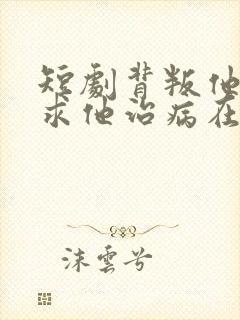 短劇背叛他
求他治病在
沫雲兮